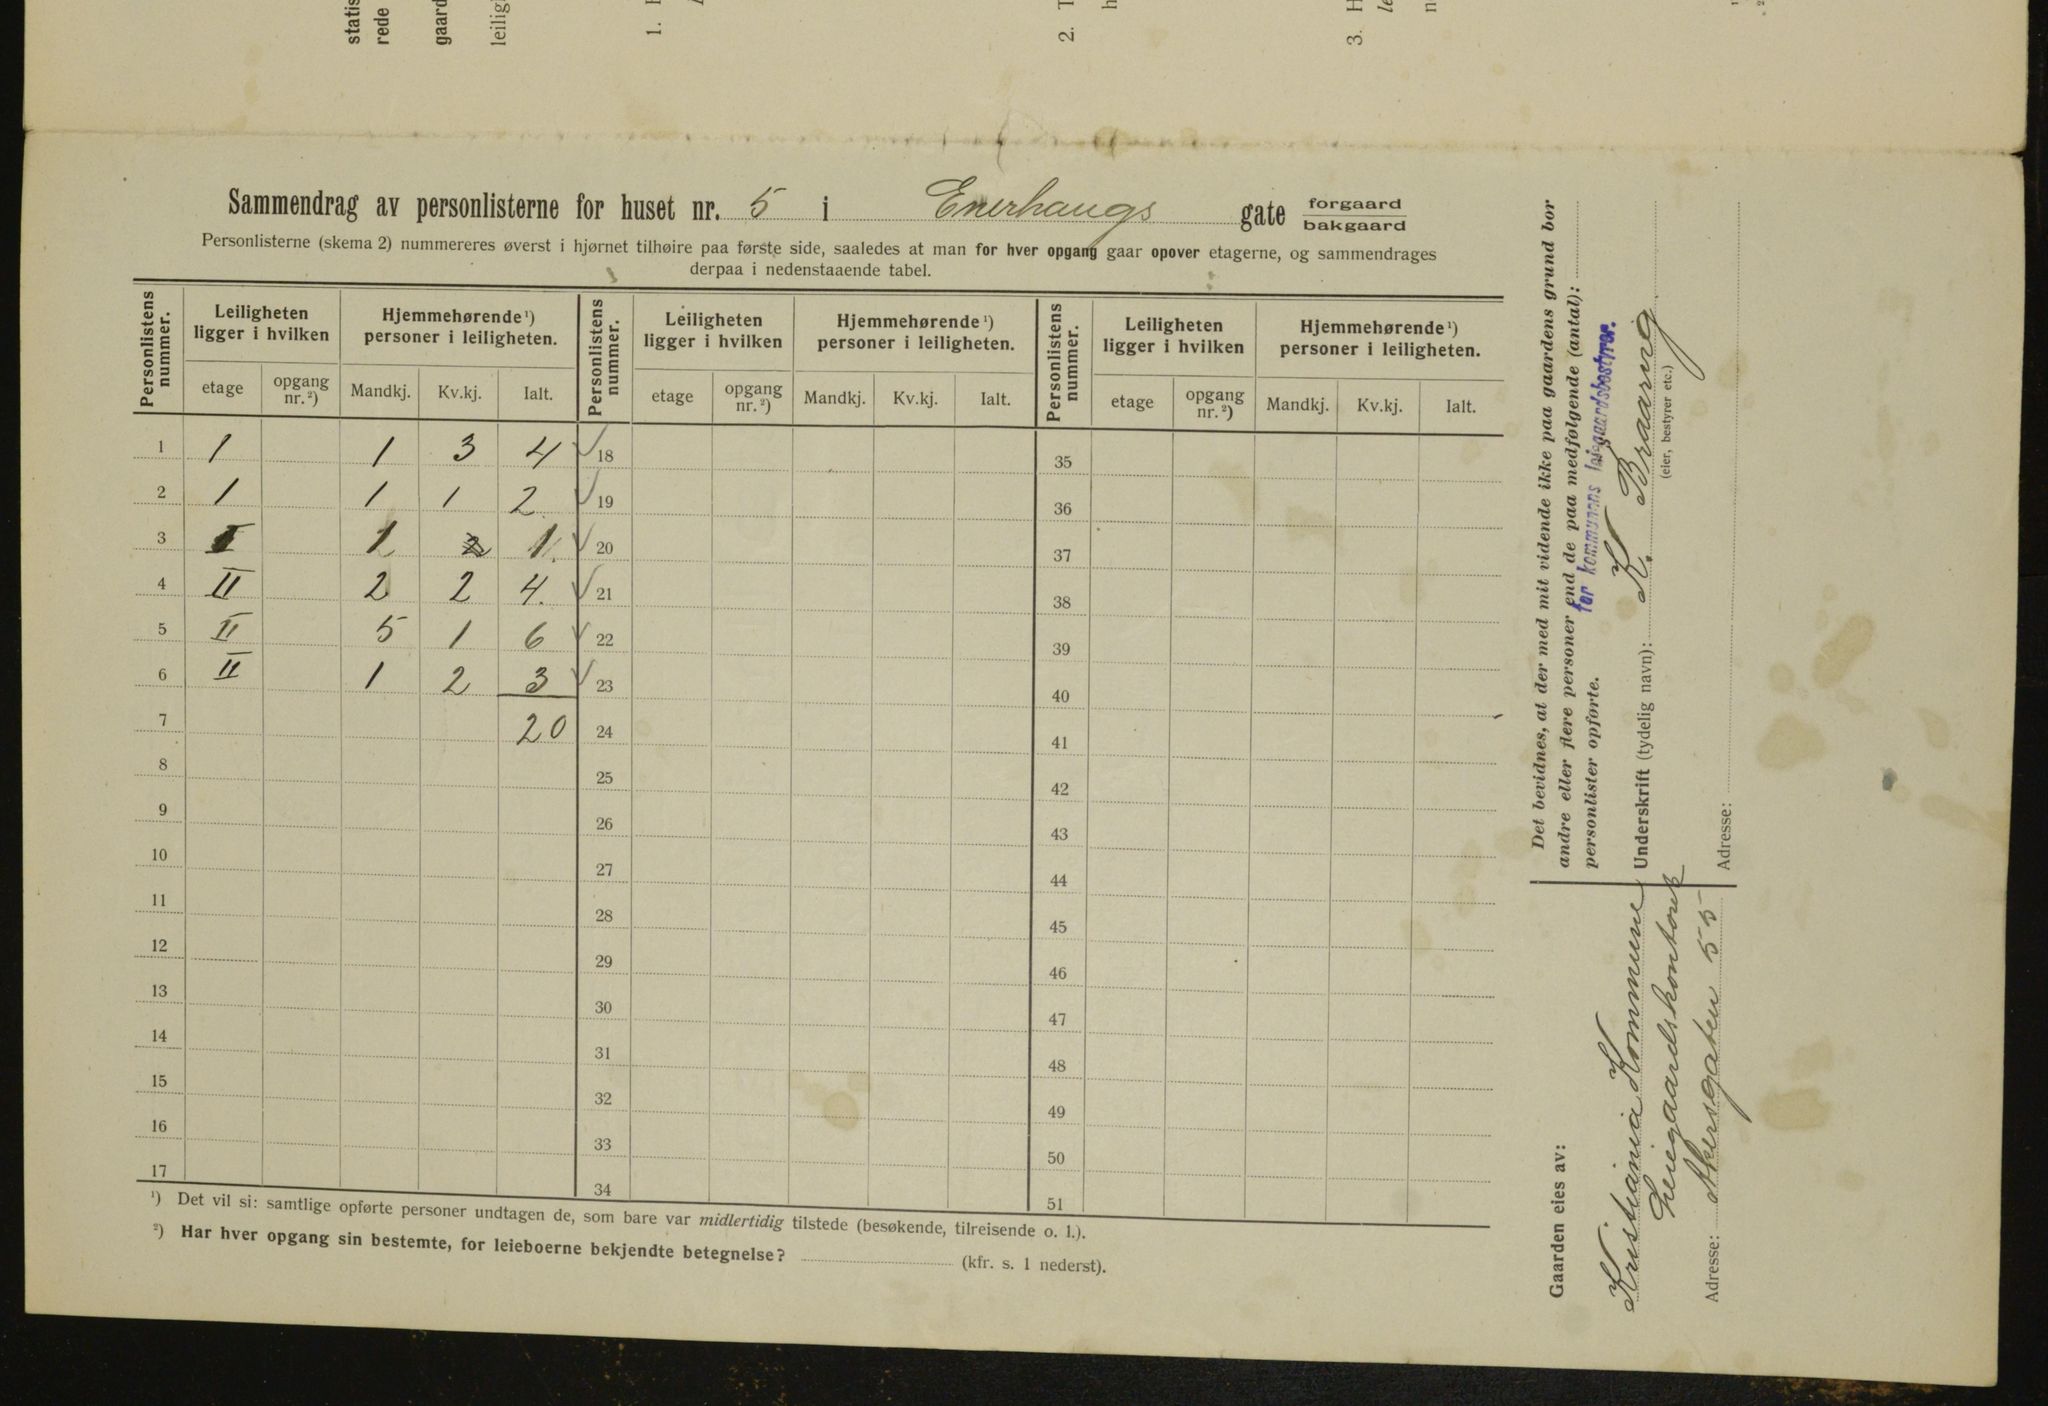 statis
rede
gaard
leilig
1.
2. T
h
3. H
le
n
Sammendrag av personlisterne for huset nr. 5 i Enerhaugs gate forgaard
bakgaard
Personlisterne (skema 2) nummereres øverst i hjørnet tilhøire paa første side, saaledes at man for hver opgang gaar opover etagerne, og sammendrages
derpaa i nedenstaaende tabel.
Personlistens nummer. Leiligheten ligger i hvilken Hjemmehørende ¹) personer i leiligheten. Personlistens nummer. Leiligheten ligger i hvilken Hjemmehørende ¹) personer i leiligheten. Personlistens nummer. Leiligheten ligger i hvilken Hjemmehørende ¹) personer i leiligheten.
etage opgang nr. ²) Mandkj. Kv.kj. Ialt. etage opgang nr. ²) Mandkj. Kv.kj. Ialt. etage opgang nr. ²) Mandkj. Kv.kj. Ialt.
1 1 1 3 4 18 35
2 1 1 1 2 19 36
3 I 1 1. 20 37
4 II 2 2 4. 21 38
5 II 5 1 6 22 39
6 II 1 2 3 23 40
7 20 24 41
8 25 42
9 26 43
10 27 44
11 28 45
12 29 46
13 30 47
14 31 48
15 32 49
16 33 50
17 34 51
¹) Det vil si: samtlige opførte personer undtagen de, som bare var midlertidig tilstede (besøkende, tilreisende o. l.).
²) Har hver opgang sin bestemte, for leieboerne bekjendte betegnelse? (kfr. s. 1 nederst).
Det bevidnes, at der med mit vidende ikke paa gaardens grund bor
andre eller flere personer end de paa medfølgende (antal):
personlister opførte.
for kommunens leiegaardsbestyrer.
Underskrift (tydelig navn): K. Braarng
(eier, bestyrer etc.)
Adresse:
Gaarden eies av:
Kristiania Kommune
Leiegaardskontoret
Adresse: Akersgaten 55